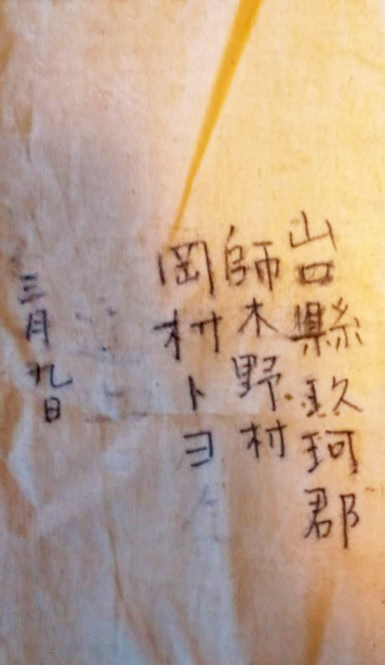 山口縣玖珂郡
師木野村
岡村トヨ
三月九日